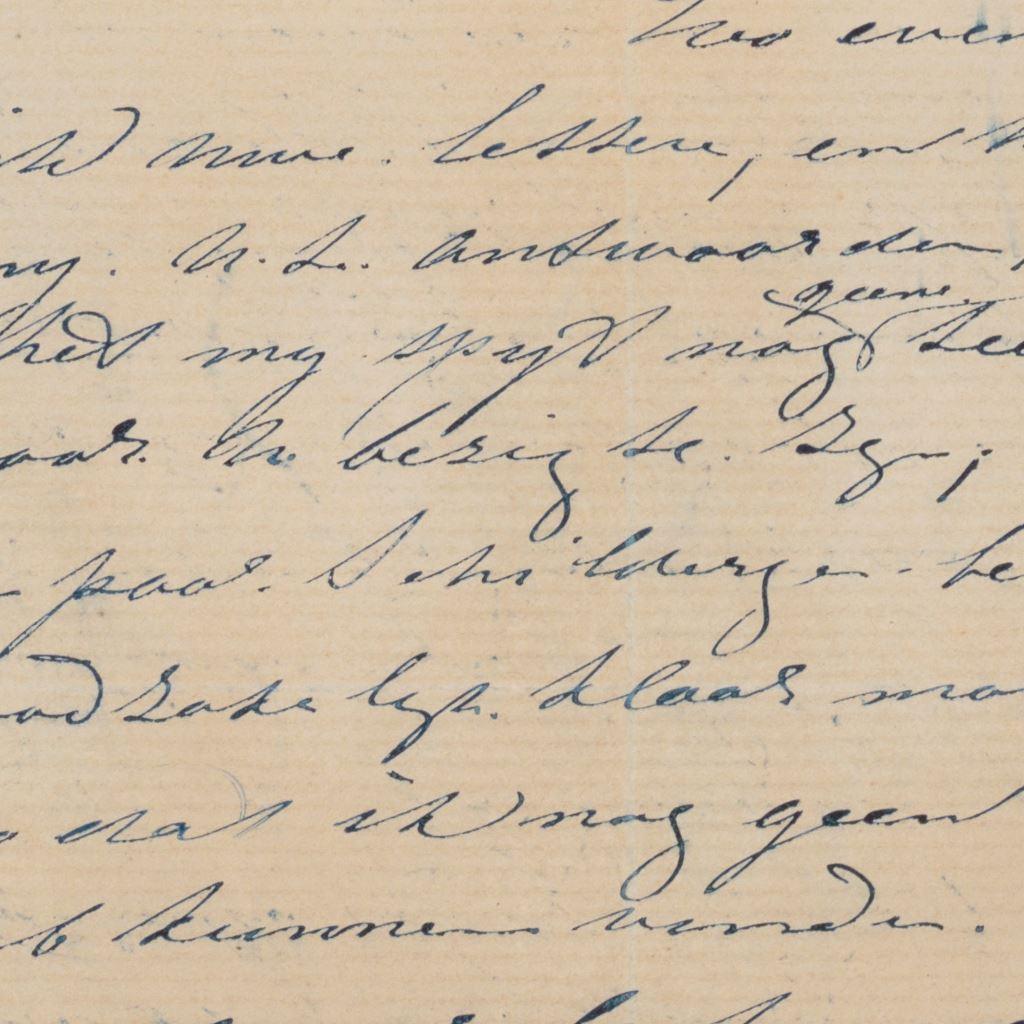 Zoo even
ik uwe letteren, en
my. U.L. antwoorden,
het my spyt nog geene
voor U bezig te zyn;
paar Schilderyen be
noodzakelyk klaar ma
zo dat ik nog geen
heb kunnen vinden.